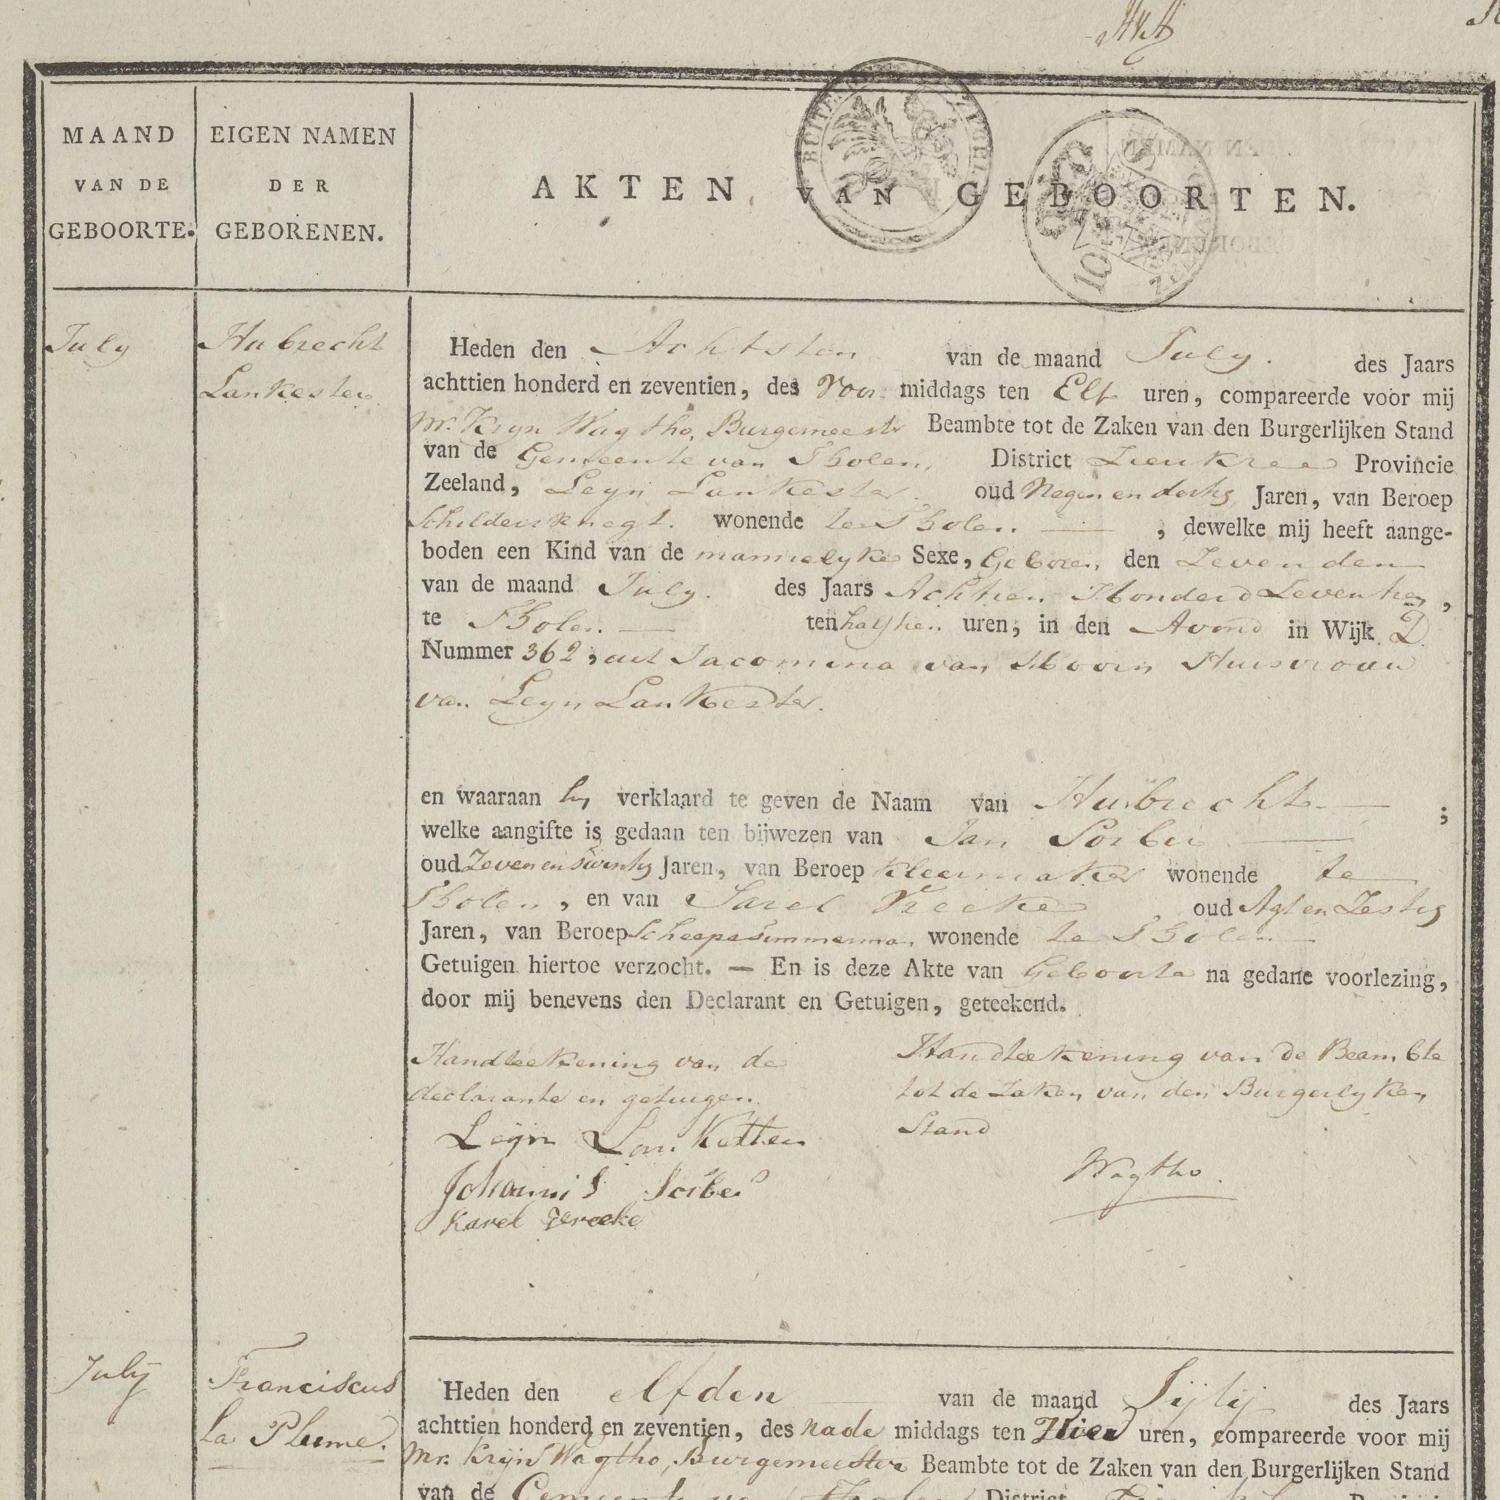 MAAND
VAN DE
GEBOORTE.
EIGEN NAMEN
DER
GEBORENEN.
AKTEN VAN GEBOORTEN.
July
Hubrecht
Lankester
Heden den Achtsten van de maand July. des Jaars
achttien honderd en zeventien, des Voor middags ten Elf uren, compareerde voor mij
Mr. Kryn Wagtho, Burgemeester Beambte tot de Zaken van den Burgerlijken Stand
van de Gemeente van Tholen, District Zierikzee Provincie
Zeeland, Leyn Lankester. oud Negen en dertig Jaren, van Beroep
Schildersknegt. wonende te Tholen — , dewelke mij heeft aange-
boden een Kind van de mannelyke Sexe, Geboren den Zevenden
van de maand July. des Jaars Achtien Honderd Zeventien,
te Tholen — ten half tien uren, in den Avond in Wijk D
Nummer 362, uit Jacomina van Hoorn Huisvrouw
van Leyn Lankester.
en waaraan hy verklaard te geven de Naam van Huibrecht — ;
welke aangifte is gedaan ten bijwezen van Jan Sorber —
oud Zeven en twintig Jaren, van Beroep Kleermaker wonende te
Tholen, en van Karel Vreeke oud Agt en Zestig
Jaren, van Beroep Scheepstimmerman wonende te Tholen —
Getuigen hiertoe verzocht. — En is deze Akte van Geboorte na gedane voorlezing,
door mij benevens den Declarant en Getuigen, geteekend.
Handteekening van de
declarante en getuigen.
Handteekening van de Beambte
tot de Zaken van den Burgerlyken
Stand
Leyn Lankester
Johannis Sorber
Karel Vreeke
Wagtho.
July
Franciscus
La Plume.
Heden den elfden van de maand Julij des Jaars
achttien honderd en zeventien, des nade middags ten Vier uren, compareerde voor mij
Mr. Krijn Wagtho, Burgemeester Beambte tot de Zaken van den Burgerlijken Stand
van de Gemeente van Tholen District